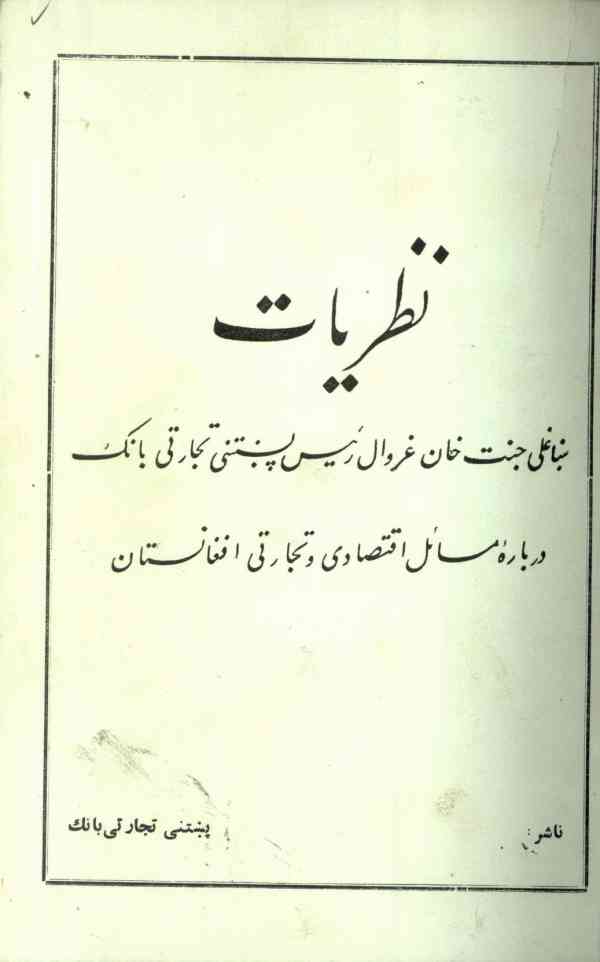 نظریات
ښاغلی جنت خان غروال رئیس پښتنی تجارتی بانک
دربارهٔ مسائل اقتصادی و تجارتی افغانستان
ناشر: پښتنی تجارتی بانک